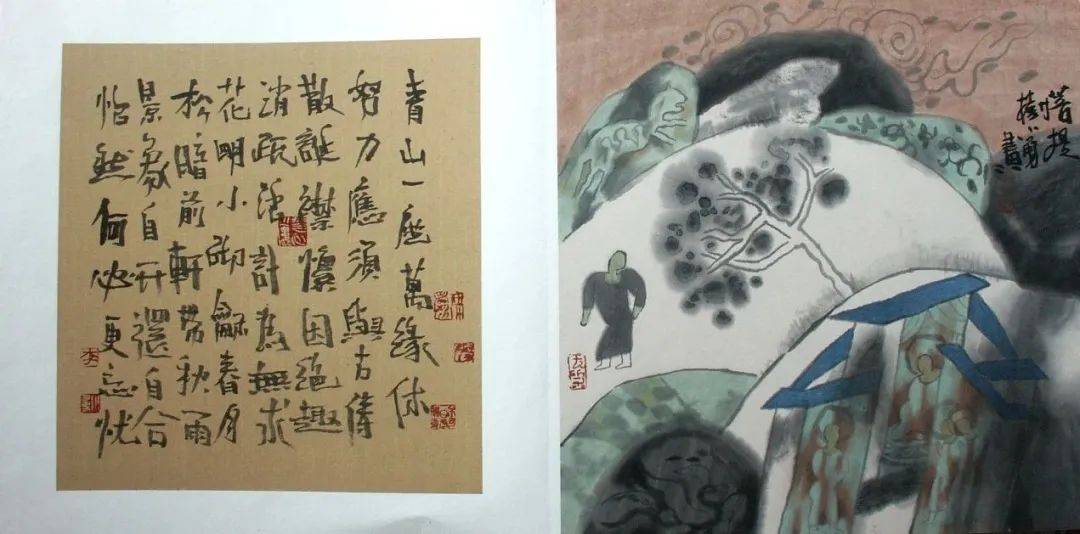 青山一座萬緣休
努力應須與古儔
散誕襟懷因絕趣
消疏活計為無求
花明小砌龢春月
松暗前軒帶秋雨
景象自开還自合
怡然何必更忘忧
菩提
樹小勇
畫